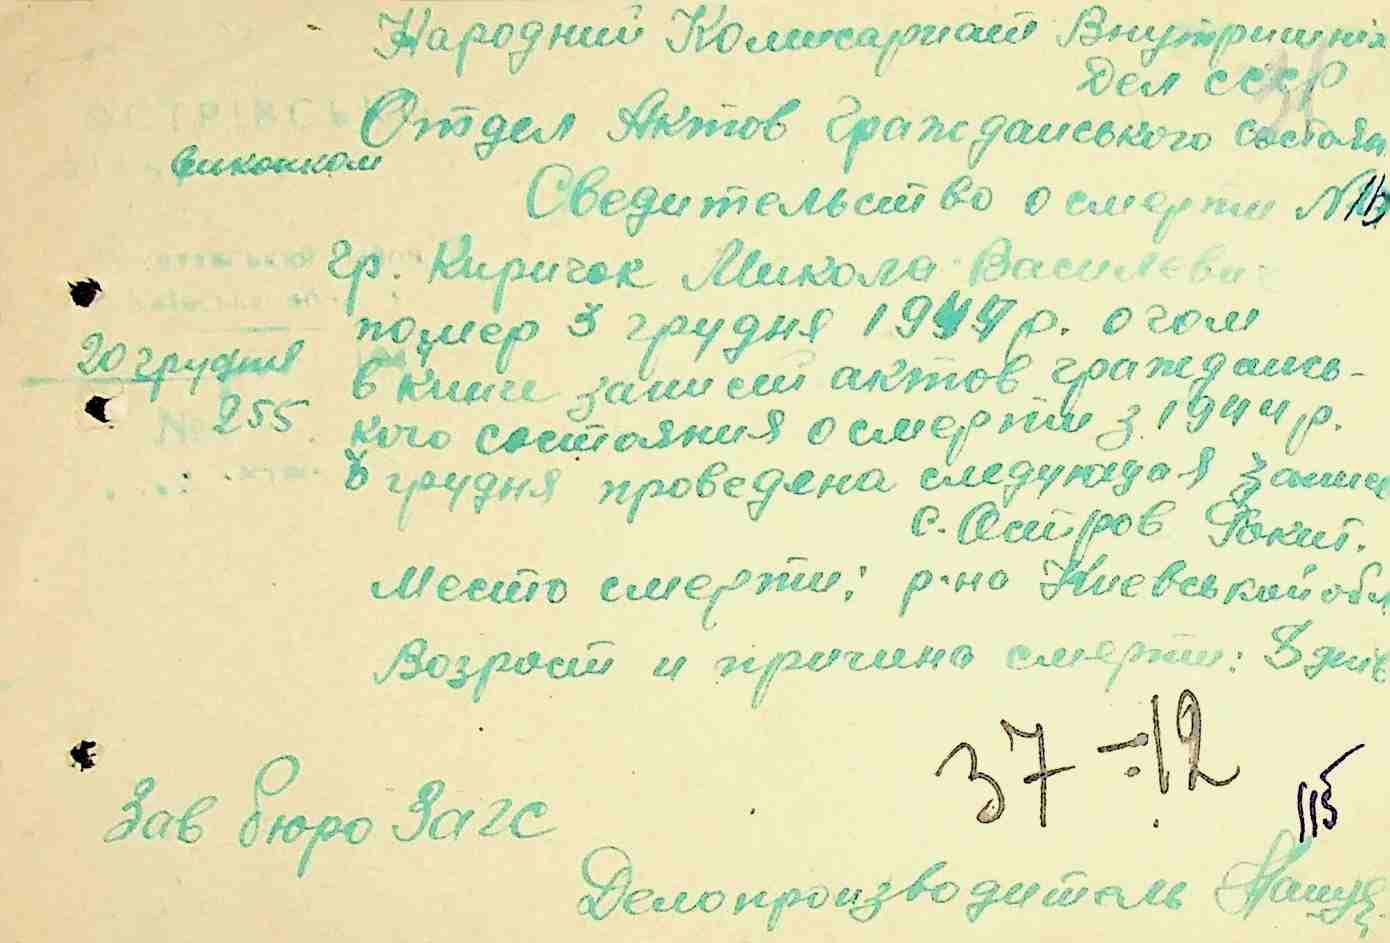 Народний Комисариат Внутришніх
Дел СССР
31
Отдел Актов Гражданського состоян
виконком
Сведительство о смерти № 113
гр. Киричок Микола Василеви
помер 3 грудня 1944 р. о чом
20 грудня
в книи записи актов граждансь-
255
кого состояния о смерти з 1944 р.
8 грудня проведена следующая запис
с. Остров Рокит.
Место смерти: р-на Киевськой обл
Возраст и причина смерти: 3 днів
37 ÷ 12
115
Зав бюро Загс
Делопроизводитель